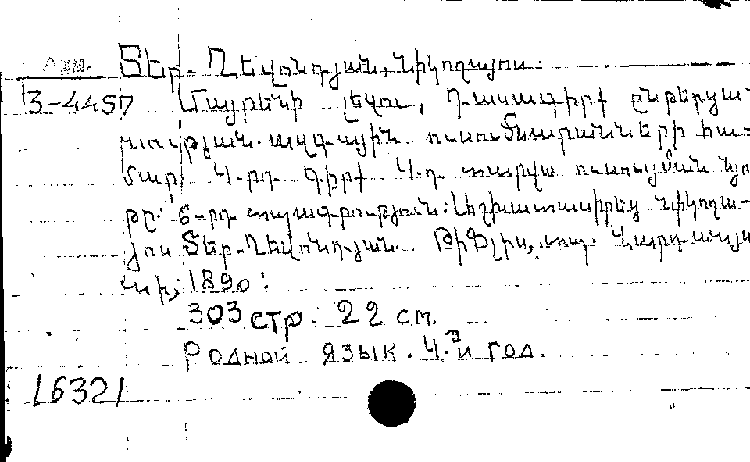 Арм. Տեր-Ղեվոնդյան, Նիկողայոս.
3-4457 Մայրենի լեզու, Դասագիրք ընթերցա-
նության ազգային ուսումնարանների հա-
մար, 4-րդ գիրք. 4-դ տարվա ուսուցման նյու-
թը: 6-րդ տպագրություն: Աշխատասիրեց Նիկողա-
յոս Տեր-Ղեվոնդյան. Թիֆլիս, տպ.
1890:
303 стр. 22 см.
Родной язык. 4.й год.
16321